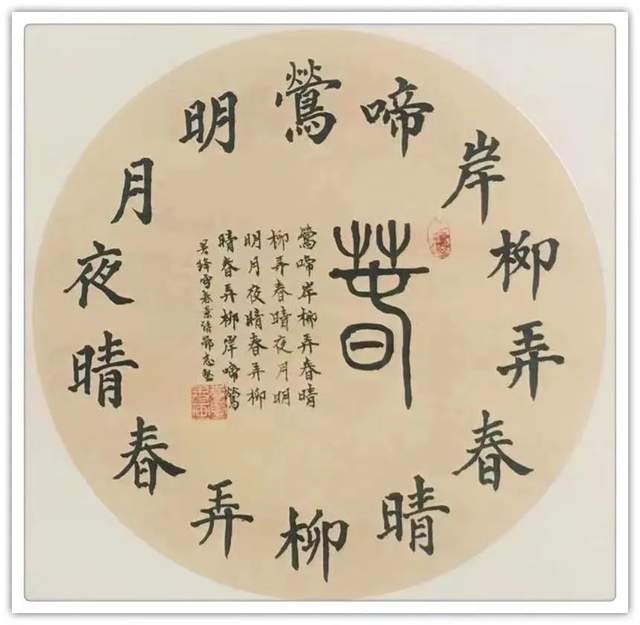 鶯啼岸柳弄春晴柳弄春晴夜月明
春
鶯啼岸柳弄春晴
柳弄春晴夜月明
明月夜晴春弄柳
晴春弄柳岸啼鶯
吴絳雪春景詩